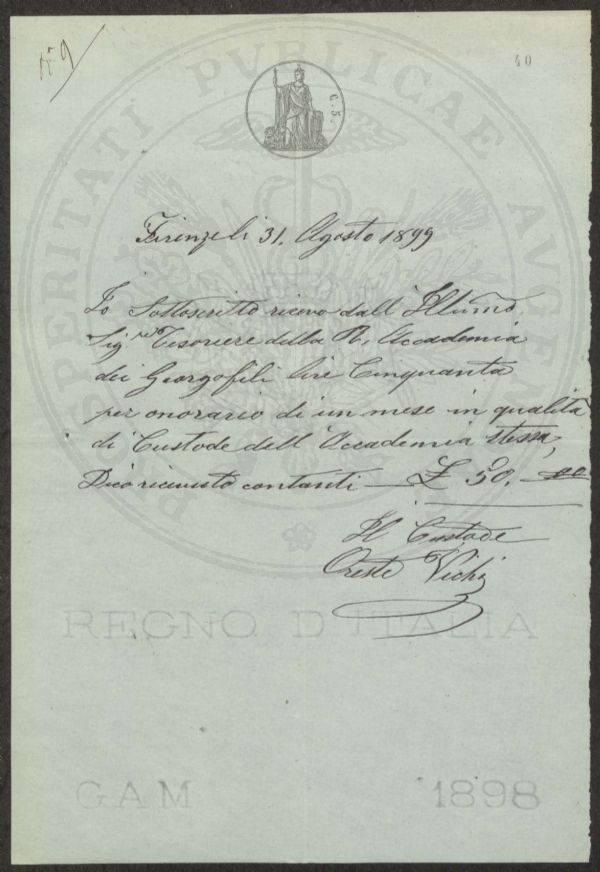 N° 9
40
PROSPERITATI PUBLICAE AUGENDAE
C. 5.
Firenze li 31. Agosto 1899
Io Sottoscritto ricevo dall Illumo
Sigre Tesoriere della R. Accademia
dei Georgofili lire Cinquanta
per onorario di un mese in qualità
di Custode dell Accademia stessa,
Dico ricevuto contanti — £ 50. 00
Il Custode
Oreste Vichi
REGNO D'ITALIA
GAM 1898